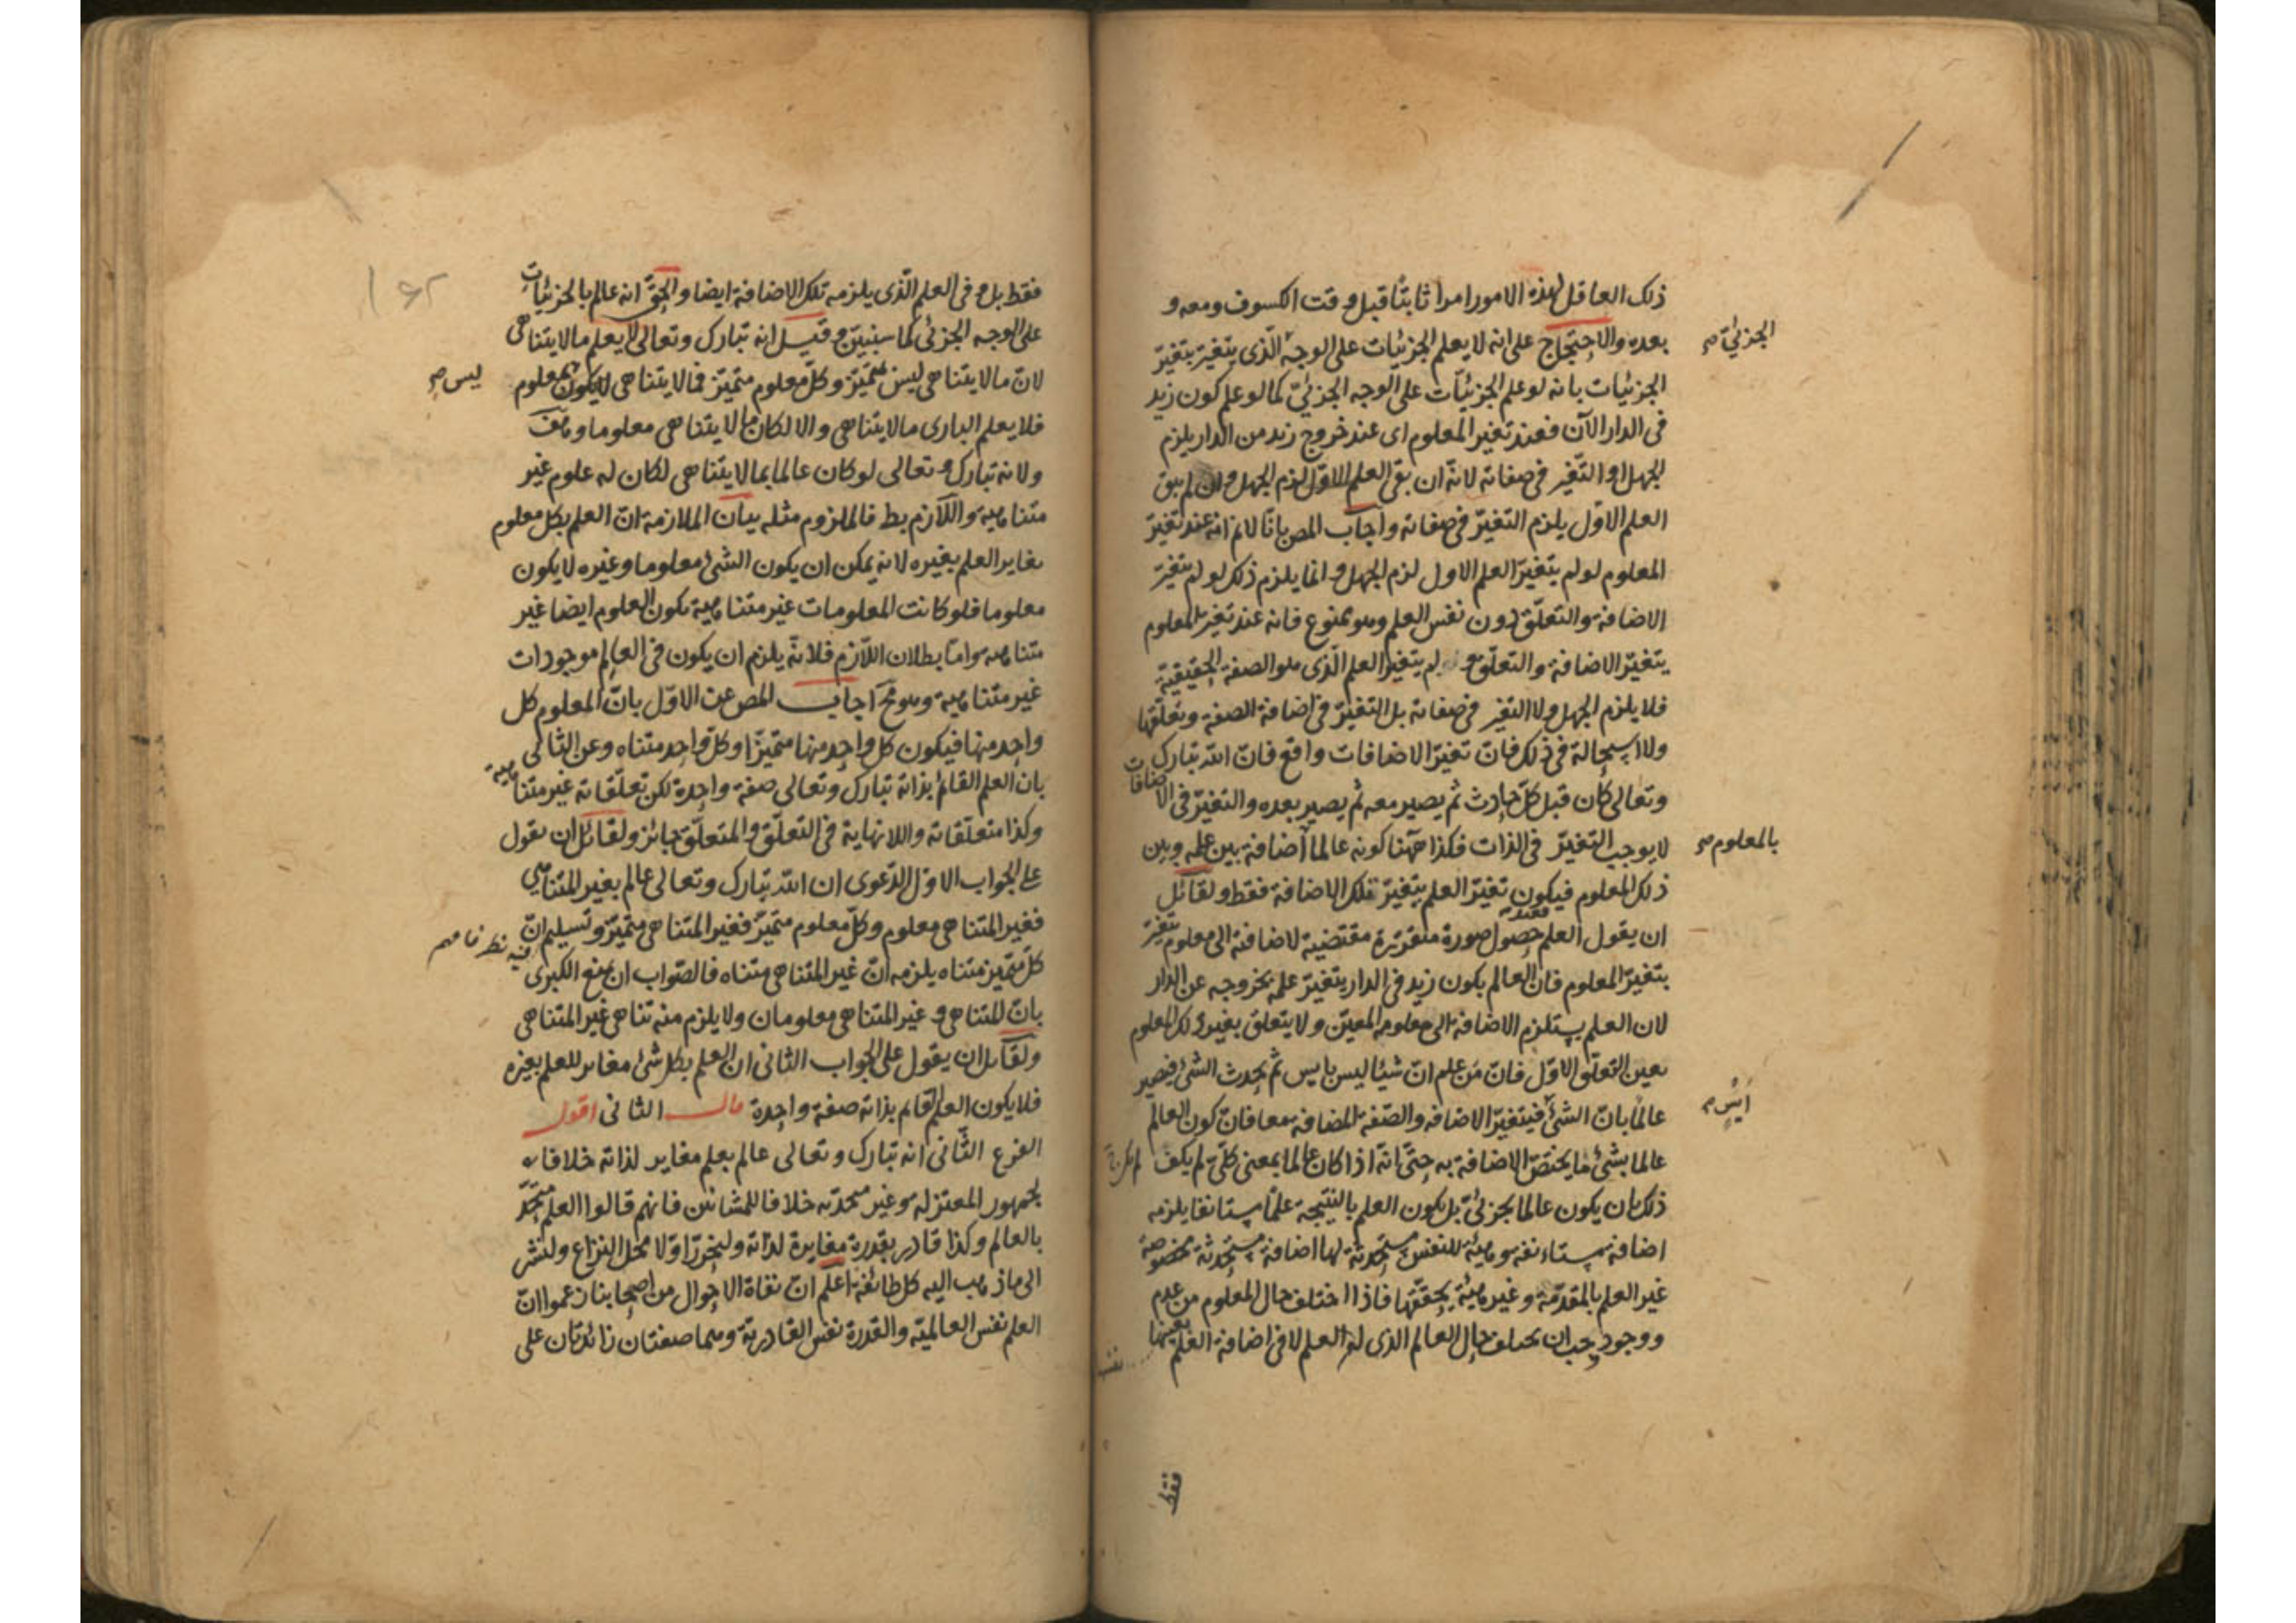 ذلك العاقل لهذه الامور امرا ثابتا قبل وقت الكسوف ومعه و
بعده والاحتجاج على انه لا يعلم الجزئيات على الوجه الذى يتغير بتغير
الجزئى صح
الجزئيات بانه لو علم الجزئيات على الوجه الجزئى كما لو علم كون زيد
فى الدار الآن فعند تغير المعلوم اى عند خروج زيد من الدار يلزم
الجهل او التغير فى صفاته لانه ان بقى العلم الاول لزم الجهل وان لم يبق
العلم الاول يلزم التغير فى صفاته واجاب المص بانا لانم انه عند تغير
المعلوم لو لم يتغير العلم الاول لزم الجهل وانما يلزم ذلك لو لم يتغير
الاضافة والتعلق دون نفس العلم وهو ممنوع فانه عند تغير المعلوم
يتغير الاضافة والتعلق ولم يتغير العلم الذى هو الصفة الحقيقية
فلا يلزم الجهل ولا التغير فى صفاته بل التغير فى اضافة الصفة وتعلقها
ولا استحالة فى ذلك فان تغير الاضافات واقع فان الله تبارك
وتعالى كان قبل كل حادث ثم يصير معه ثم يصير بعده والتغير فى الاضافات
لا يوجب التغير فى الذات فكذا ههنا كونه عالما اضافة بين علمه وبين
بالمعلوم صح
ذلك المعلوم فيكون تغير العلم بتغير تلك الاضافة فقط ولقائل
ان يقول العلم حصول صورة متقررة مقتضية لاضافة الى معلوم يتغير
بتغير المعلوم فان العالم بكون زيد فى الدار يتغير علمه بخروجه عن الدار
لان العلم يستلزم الاضافة الى معلومه المعين ولا يتعلق بغير ذلك المعلوم
بعين التعلق الاول فان من علم ان شيئا ليس بايس ثم يحدث الشئ فيصير
عالما بان الشئ فيتغير الاضافة والصفة المضافة معا فان كون العالم
ايس صح
عالما بشئ ما يختص الاضافة به حتى انه اذا كان عالما بمعنى كلى لم يكف
ذلك بان يكون عالما بجزئى بل يكون العلم بالنتيجة علما مستانفا يلزمه
اضافة مستانفة وهيئة للنفس مستحدثة لها اضافة مستحدثة مخصوصة
غير العلم بالمقدمة وغير هيئة تحققها فاذا اختلف حال المعلوم من عدم
ووجود وجب ان يختلف حال العالم الذى له العلم لا فى اضافة العلم بعينها
فقط
فقط بل وفى العلم الذى يلزمه تلك الاضافة ايضا والحق انه عالم بالجزئيات
على الوجه الجزئى كما سنبين وقيل انه تبارك وتعالى لا يعلم ما لا يتناهى
لان ما لا يتناهى ليس بمتميز وكل معلوم متميز فما لا يتناهى لا يكون بمعلوم
ليس صح
فلا يعلم البارى ما لا يتناهى والا لكان ما لا يتناهى معلوما وهف
ولانه تبارك وتعالى لو كان عالما بما لا يتناهى لكان له علوم غير
متناهية واللازم بط فالملزوم مثله بيان الملازمة ان العلم بكل معلوم
يغاير العلم بغيره لانه يمكن ان يكون الشئ معلوما وغيره لا يكون
معلوما فلو كانت المعلومات غير متناهية يكون العلوم ايضا غير
متناهية واما بطلان اللازم فلانه يلزم ان يكون فى العالم موجودات
غير متناهية وهو مح اجاب المص عن الاول بان المعلوم كل
واحد منها فيكون كل واحد منها متميزا وكل واحد متناه وعن الثانى
بان العلم القائم بذاته تبارك وتعالى صفة واحدة لكن تعلقاته غير متناهية
وكذا متعلقاته واللانهاية فى التعلق والمتعلق جائز ولقائل ان يقول
على الجواب الاول الدعوى ان الله تبارك وتعالى عالم بغير المتناهى
فغير المتناهى معلوم وكل معلوم متميز فغير المتناهى متميز وتسليم ان
كل متميز متناه يلزمه ان غير المتناهى متناه فالصواب ان يمنع الكبرى
فيه نظر
بان المتناهى وغير المتناهى معلومان ولا يلزم منه تناهى غير المتناهى
ولقائل ان يقول على الجواب الثانى ان العلم بكل شئ مغاير للعلم بغيره
فلا يكون العلم القائم بذاته صفة واحدة قال الثانى اقول
الفرع الثانى انه تبارك وتعالى عالم بعلم مغاير لذاته خلافا
لجمهور المعتزله وغير متحد به خلافا للمشائين فانهم قالوا العلم متحد
بالعالم وكذا قادر بقدرة مغايرة لذاته ولنحرر اولا محل النزاع ولنشر
الى ما ذهب اليه كل طائفة اعلم ان نفاة الاحوال من اصحابنا زعموا ان
العلم نفس العالمية والقدرة نفس القادرية وهما صفتان زائدتان على